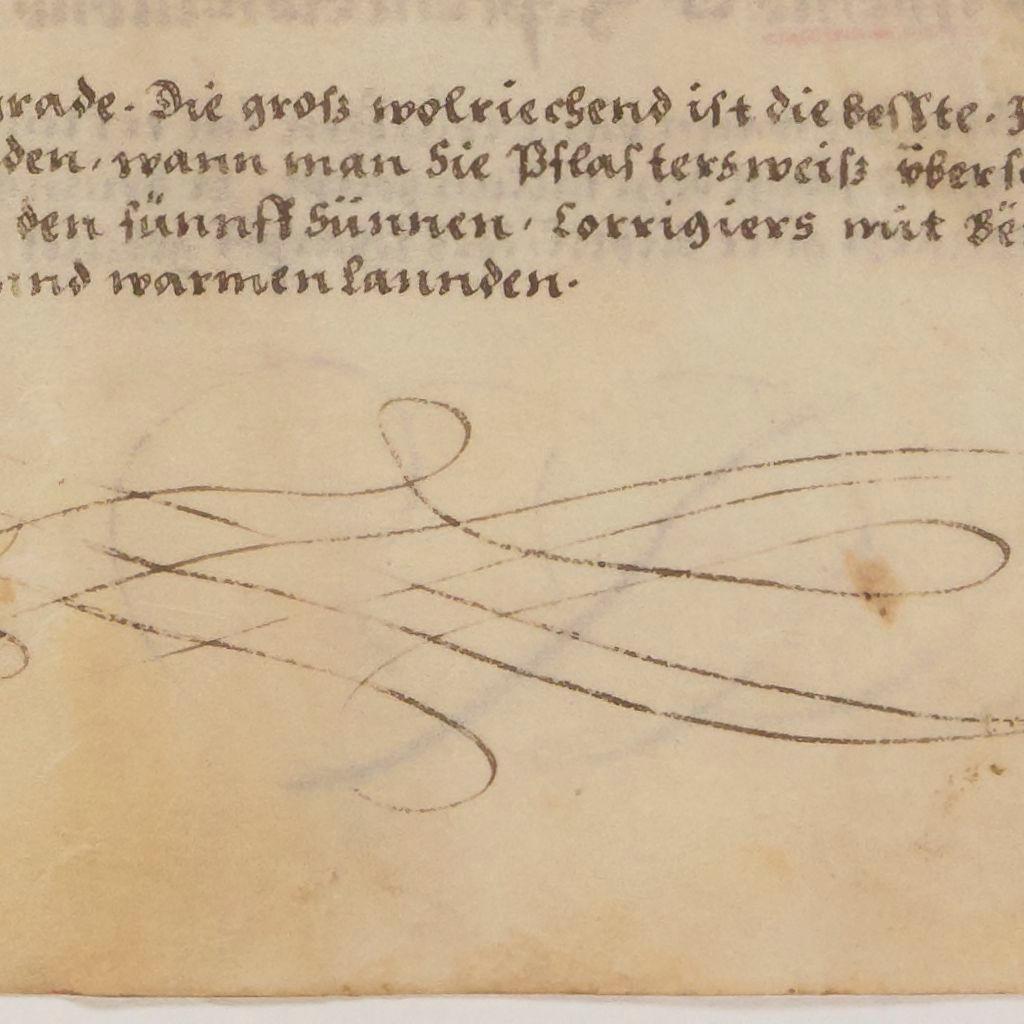 grade. Die groß wolriechend ist die beſſte.
den, wann man Sie Pflaſtersweiß überſ
den fünnff Sünnen, Corrigiers mit
unnd warmen Lannden.